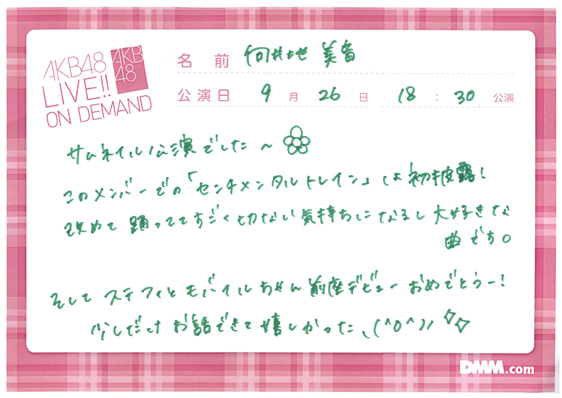 AKB48
LIVE!!
ON DEMAND
AKB
48
名前 向井地 美音
公演日 9月 26日 18:30 公演
サムネイル公演でした〜
このメンバーでの「センチメンタルトレイン」は初披露!
改めて踊っててすごく切ない気持ちになるし大好きな
曲です。
そして ステフィとモバイルちゃん前座デビューおめでとうー!
少しだけお話できて嬉しかった、(^o^)/
DMM.com